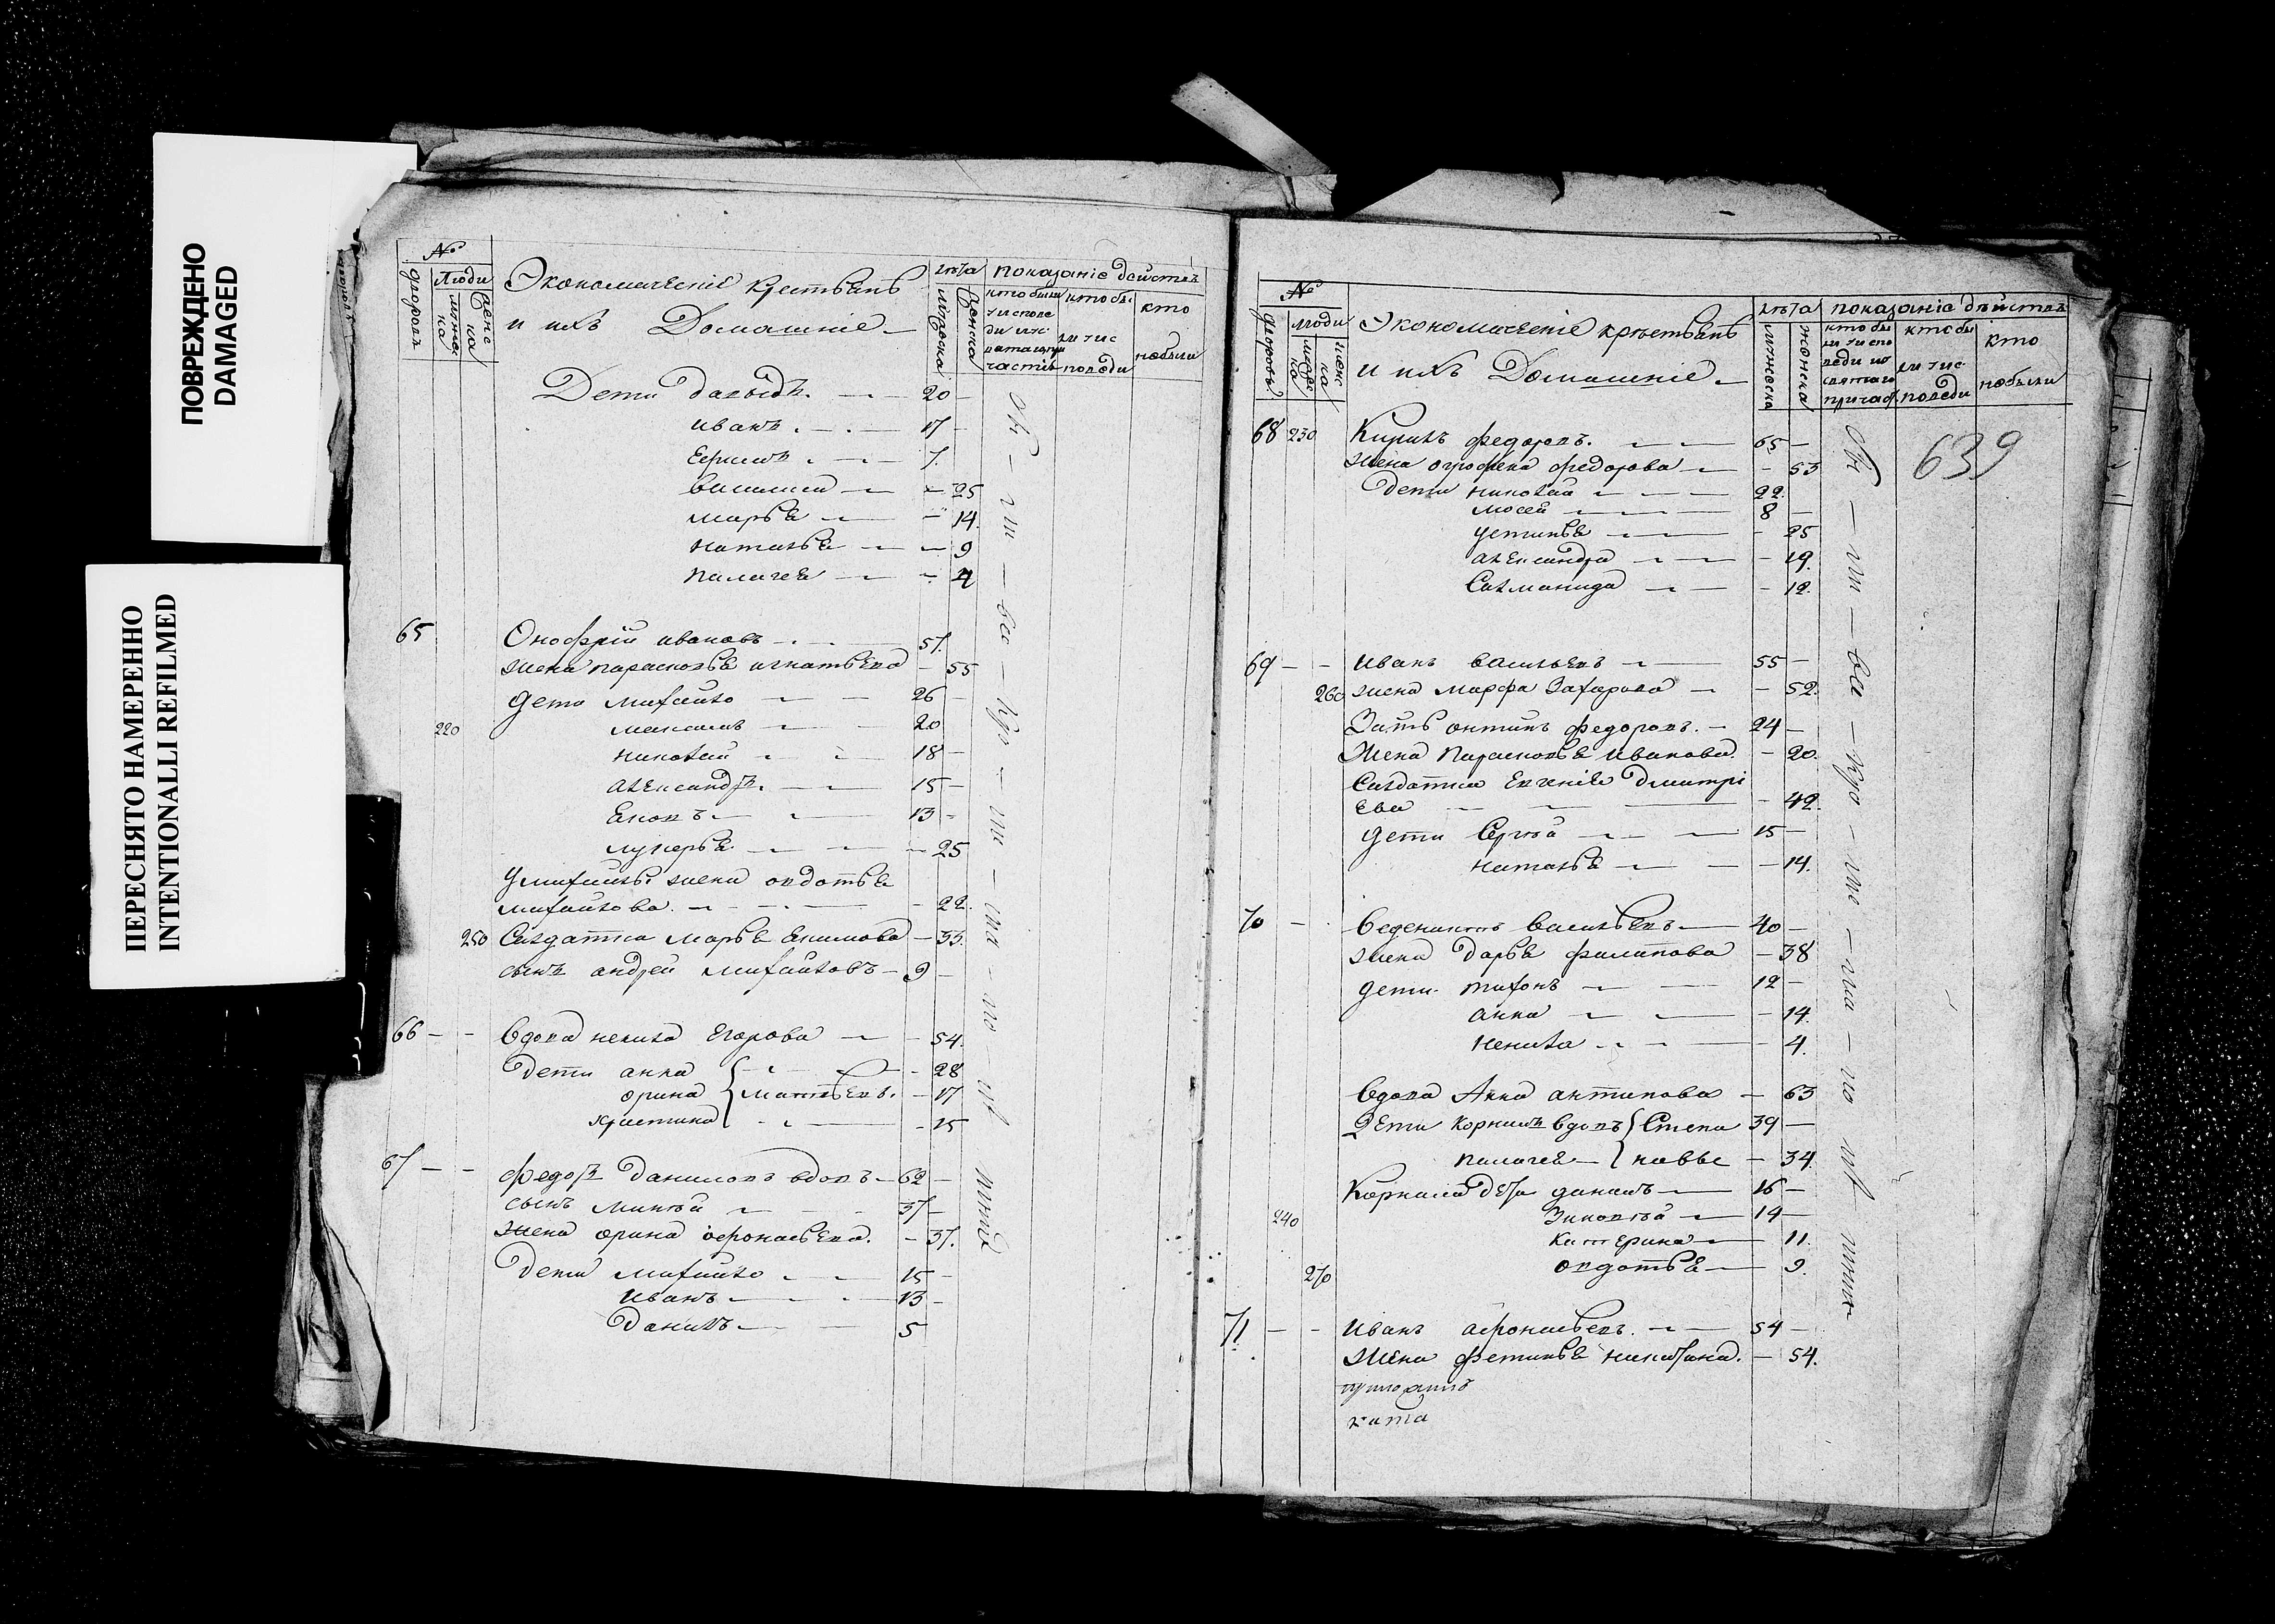 ПОВРЕЖДЕНО
DAMAGED
ПЕРЕСНЯТО НАМЕРЕННО
INTENTIONALLI REFILMED
№
дворовъ
Люди
мужеска
женска
Экономическіе крестьянъ
и ихъ Домашніе
лѣта
мужеска
женска
показаніе действъ
кто были
кто бы
ли у ис
поведи
кто
небыли
Дети давыдъ 20
иванъ 17
Ефимъ 7
василиса 25
марья 14
наталья 9
палагея 4
65 Онофрій ивановъ 57
жена парасковья игнатьева 55
дети михайло 26
220 максимъ 20
николай 18
александръ 15
яковъ 13
лукерья 25
У михайлы жена овдотья
михайлова 22
250 Салдатка марья якимова 33
сынъ андрей михайловъ 9
66 вдова ненила егорова 54
Дети анна 28
орина } матвѣевы 17
христина 15
67 федоръ Даниловъ вдовъ 62
сынъ 37
жена орина афонасьева 37
Дети михайло 15
иванъ 13
Данило 5
№
дворовъ
люди
мужеска
женска
Экономическіе крѣстьянъ
и ихъ Домашніе
лѣта
мужеска
женска
показаніе дѣйствъ
кто бы
ли у испо
веди и
святаго
причас.
кто бы
ли у ис
поведи
кто
небыли
639
68 230 федоровъ 65
жена огрофена федорова 53
Дети николай 22
мосей 8
устинья 25
александра 19
Саломанида 12
69 иванъ васильевъ 55
260 жена марфа Захарова 52
Зять онтипъ федоровъ 24
Жена Парасковья иванова 20
Салдатка Евгенія Дмитрі
ева 42
дети Сергѣй 15
наталья 14
70 веденихтъ васильевъ 40
жена Дарья филипова 38
дети тихонъ 12
анна 14
ненила 4
вдова Анна антипова 63
Дети корнилъ вдовъ } Степа 39
палагея } новые 34
Корнила дѣти данилъ 16
240 Зиновѣй 14
катерина 11
270 овдотья 9
71 иванъ афонасьевъ 54
Жена фетинья никитина 54